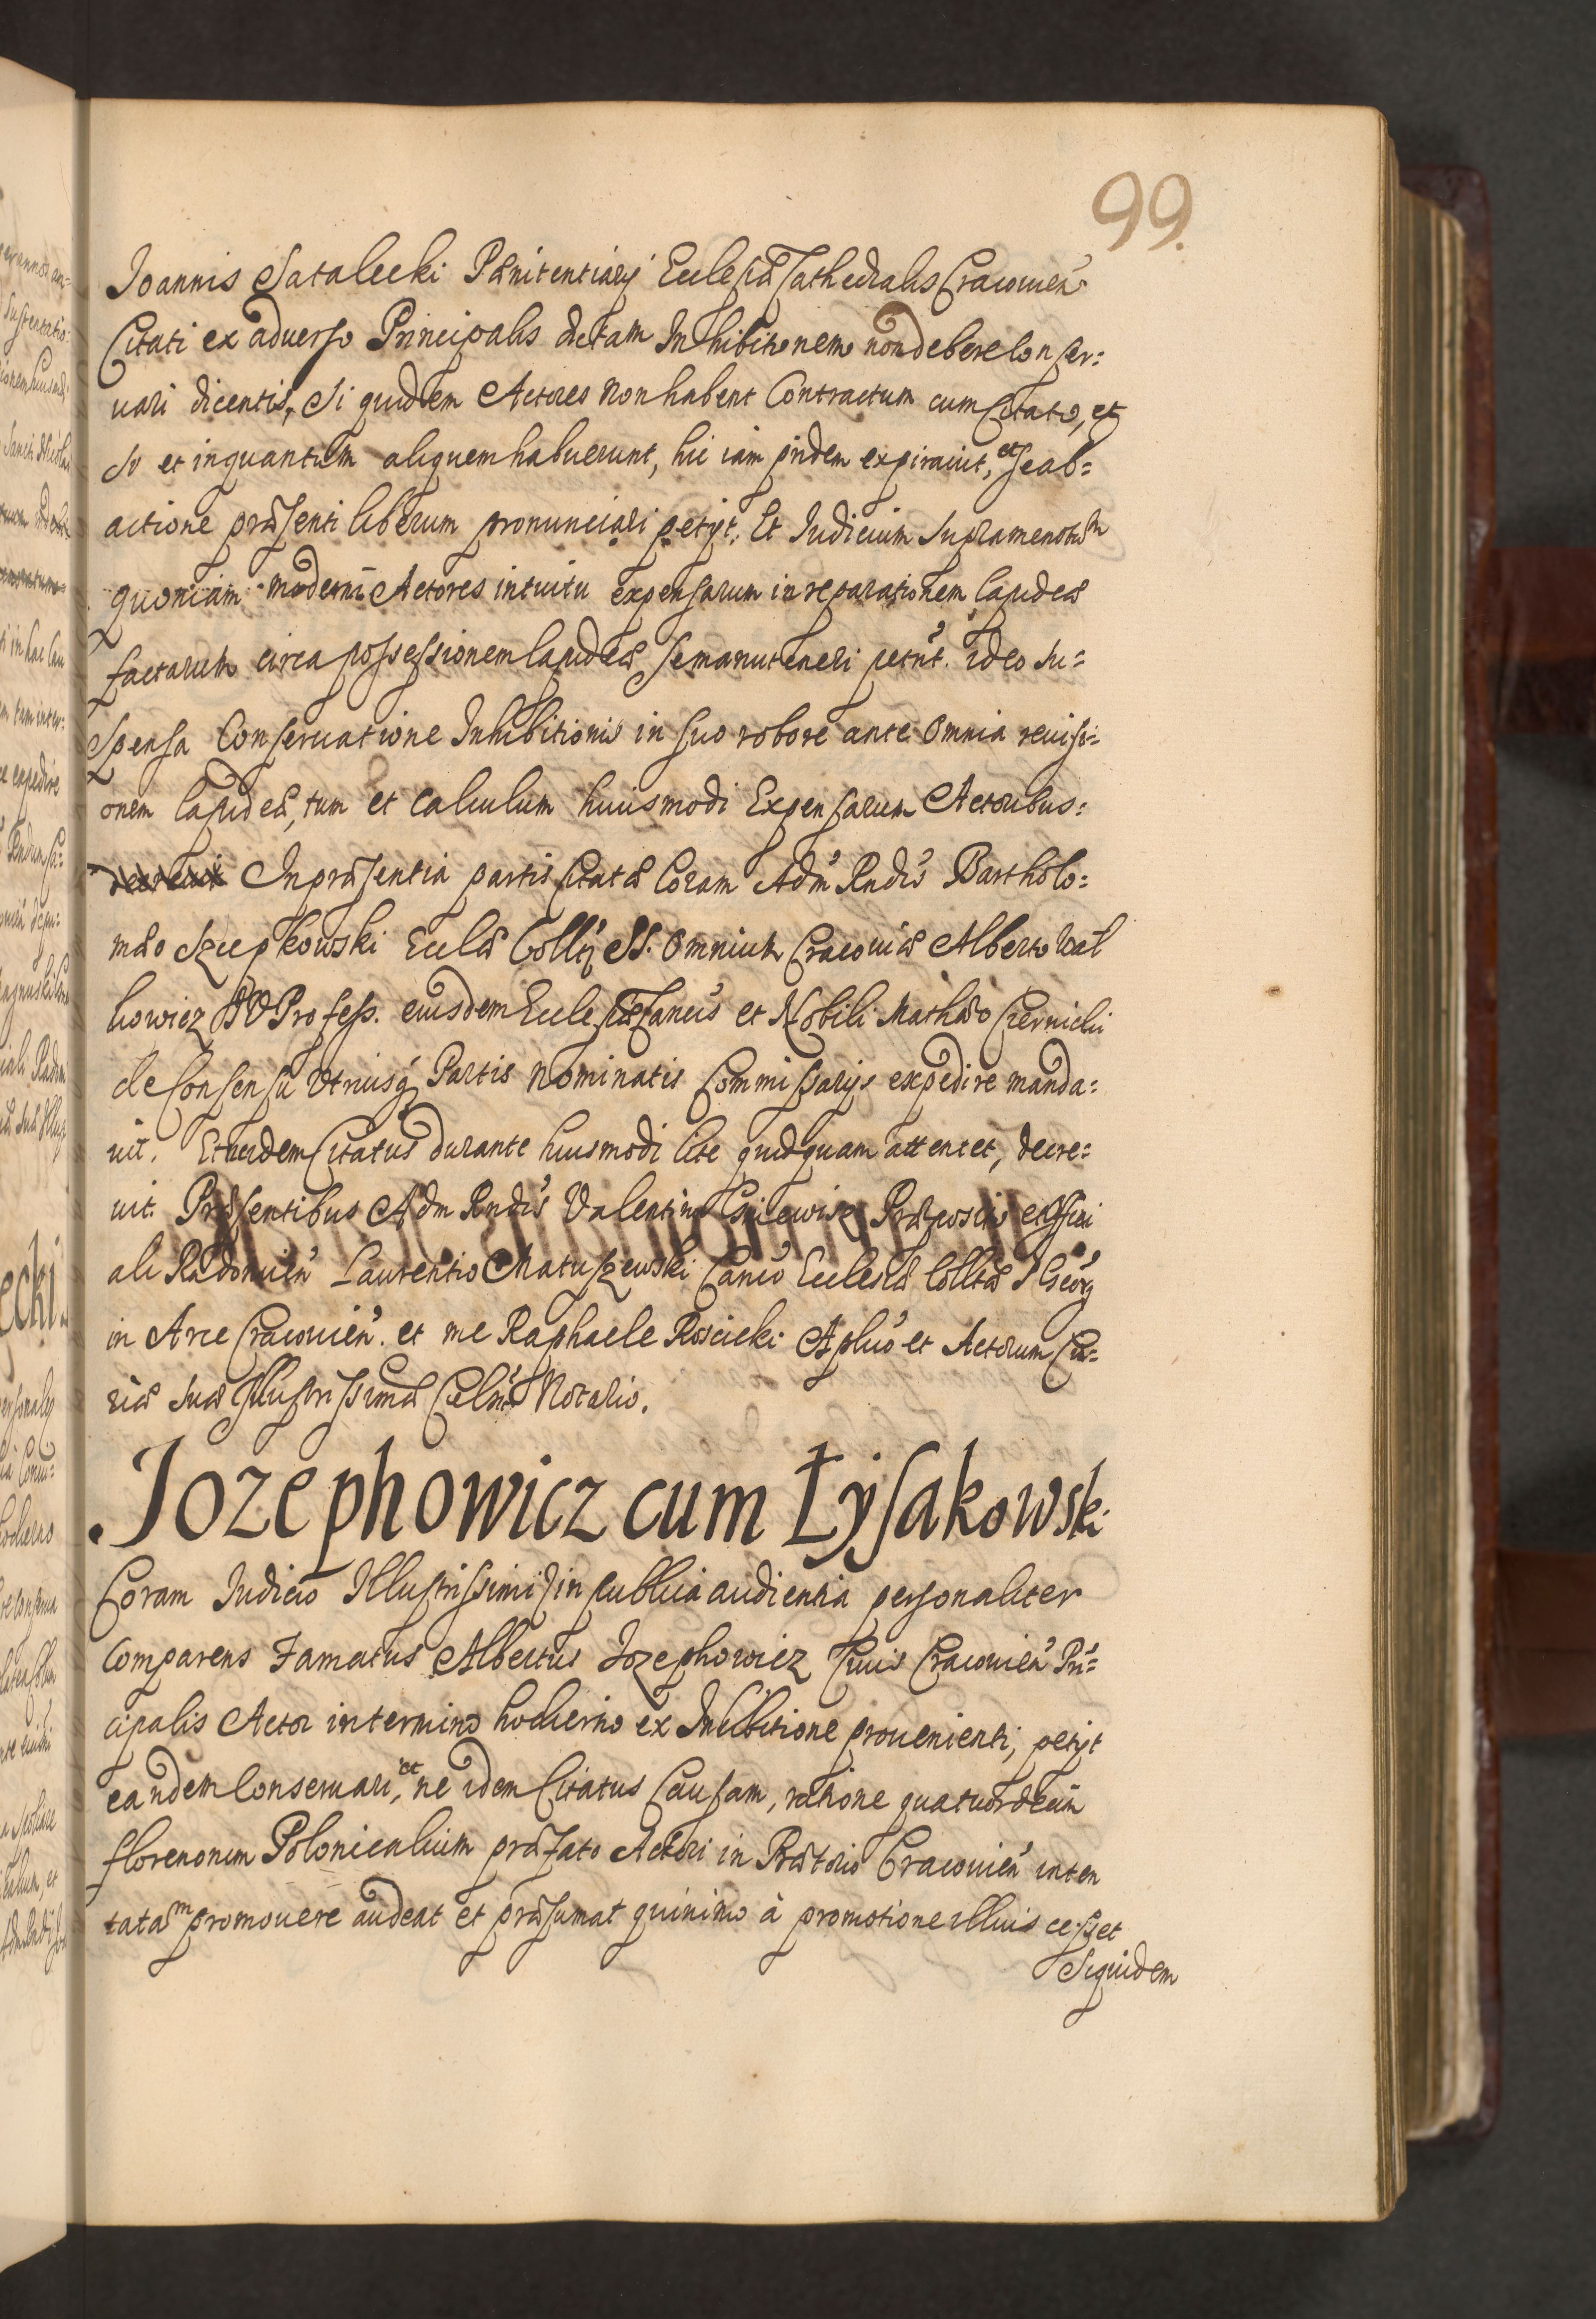 99.
Joannis Satalecki Pænitentiarij Ecclesiæ Cathedralis Cracouień
Citati ex aduerso Principalis dictam Inhibitionem non debere Conser:
uari dicentis, Si quidem Actores non habent Contractum cum Citato, et
si et inquantum aliquem habuerunt, hic iam pridem expirauit, et se ab:
actione præsenti liberum pronunciari petijt. Et Iudicium Supramenotum
quoniam moderni Actores intuitu expensarum in reparationem lapideæ
factarum circa possessionem lapideæ se manuteneri petunt. ideo Su:
spensa Conseruatione Inhibitionis in suo robore ante omnia reuisi:
onem lapideæ, tum et calculum huiusmodi Expensarum Actoribus:
In præsentia partis Citatæ Coram Adm Rndis Bartholo:
mæo Szczepkowski Ecclæ Collæ SS. Omnium Cracouiæ Alberto Wal
kowicz Profess. eiusdem Ecclesiæ Cancis et Nobili Mathæo Czernicki
de Consensu Vtriusq Partis nominatis Commissarijs expedire manda:
uit. Et ne idem Citatus durante huiusmodi lite quidquam attentet, decre:
uit. Præsentibus Adm Rndis Valentino Præposito et Offici
ali Radomień Laurentio Matuszewski Canco Ecclesiæ Colltæ S Georg
in Arce Cracouień. et me Raphaele Roscicki Aplico et Actorum Cu:
riæ Suæ Illustrissimæ Celsnis Notario.
Jozephowicz cum Łysakowski
Coram Iudicio Illustrissimi in publica audientia personaliter
Comparens Famatus Albertus Jozephowicz Ciuis Cracouień Prin:
cipalis Actor in termino hodierno ex Inhibitione prouenienti, petijt
eandem Conseruari, et ne idem Citatus Causam, ratione quatuordecim
florenorum Polonicalium præfato Actori in Prætorio Cracouień inten
tatam promouere audeat et præsumat quinimo à promotione illius cesset
Siquidem